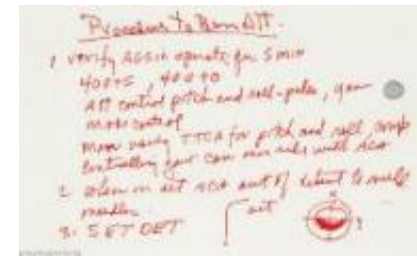 Procedure to Burn ATT.
1 verify AGS in operate for 5 min
400+5, 400+0
ATT control pitch and roll-pulse, yaw
mode control
man using TTCA for pitch and roll,
controlling yaw can min with ACA
2 when in att ACA out of detent to null
needles
3. SET DET att